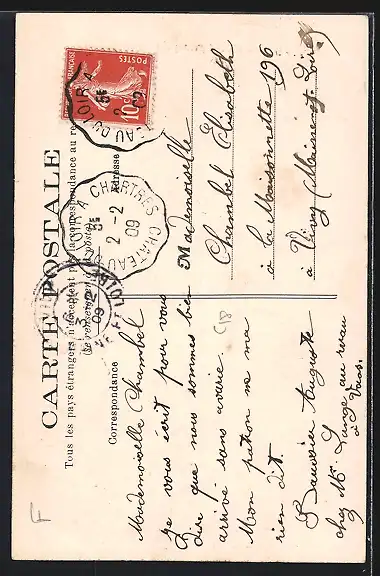 CARTE POSTALE
Tous les pays étrangers n'acceptent pas la correspondance au re
(Se renseigner à la poste)
Correspondance
Adresse
Mademoiselle Chambel
je vous écrit pour vous
dire que nous sommes bien
arrivé sans avarie.
Mon patron ne ma
rien dit.
Auguste
chez Mr. Lange au
à Vaas.
Mademoiselle
Chambel Elisabeth
à la Maisonnette 196
à Maine et Loire
POSTES
10c
EAU DU LOIR A
5E
2
09
CHARTRES CHATEAU
2 - 2
09
18
F